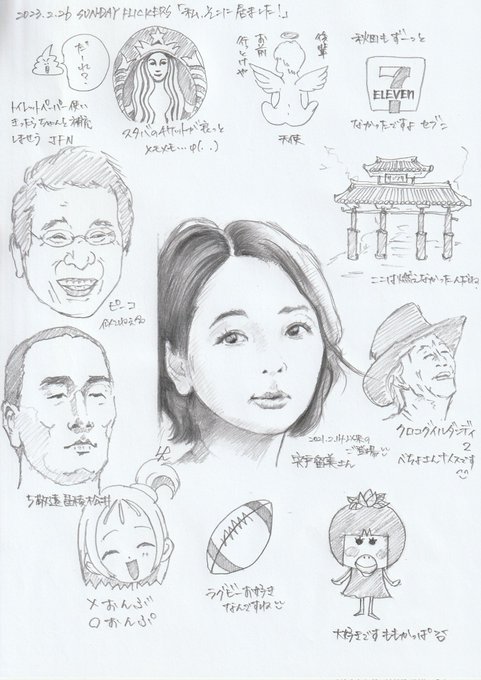 2023.2.26 SUNDAY FLICKERS 「私、そこに居ました!」
だーれ?
トイレットペーパー使い
きったらちゃんと補充
しませう JFN
スタバのチケットがもっと
メモメモ…φ(..)
後輩
お前
行っとけや
天使
秋田もずーっと
7
ELEVEN
なかったですよ セブン
ここは燃えなかったんだね
ピンコ
クロコダイルダンディ
2
べちょさんナイスです
2021.2.14以来の
ご登場
宍戸留美さん
×おんぶ
○おんぷ
ラグビーお好き
なんですね
大好きです ももかっぱ